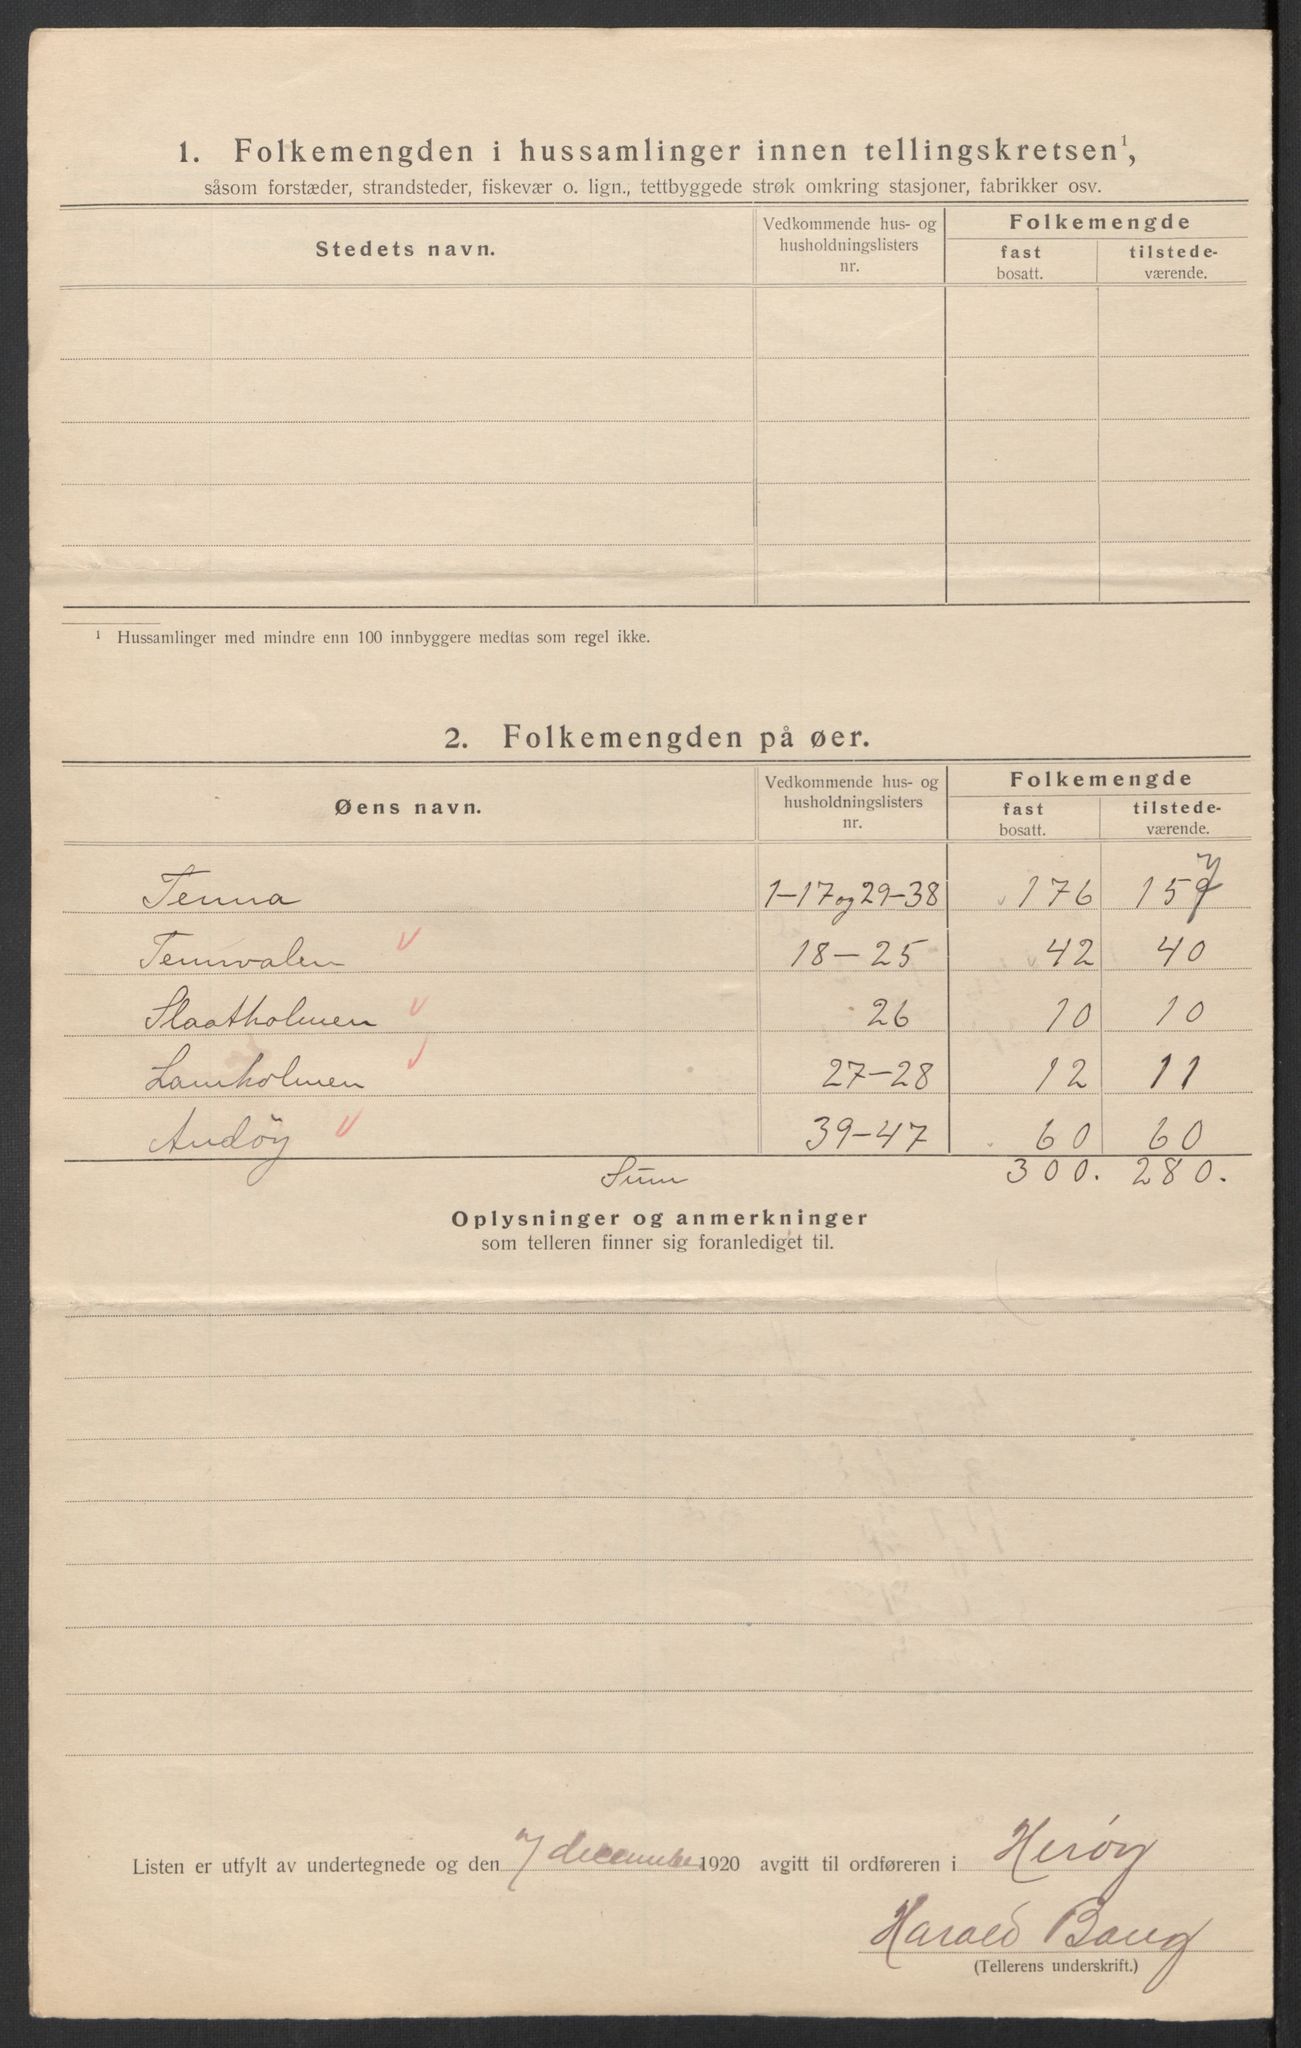 1. Folkemengden i hussamlinger innen tellingskretsen¹,
såsom forstæder, strandsteder, fiskevær o. lign., tettbyggede strøk omkring stasjoner, fabrikker osv.
Stedets navn. Vedkommende hus- og husholdningslisters nr. Folkemengde
fast bosatt. tilstede-værende.
¹ Hussamlinger med mindre enn 100 innbyggere medtas som regel ikke.
2. Folkemengden på øer.
Øens navn. Vedkommende hus- og husholdningslisters nr. Folkemengde
fast bosatt. tilstede-værende.
Tenna 1-17 og 29-38 176 159
Tennvalen 18-25 42 40
Slaatholmen 26 10 10
Lamholmen 27-28 12 11
Andöy 39-47 60 60
Sum 300. 280.
Oplysninger og anmerkninger
som telleren finner sig foranlediget til.
Listen er utfylt av undertegnede og den 7 december 1920 avgitt til ordføreren i Herøy
Harald Bang
(Tellerens underskrift.)